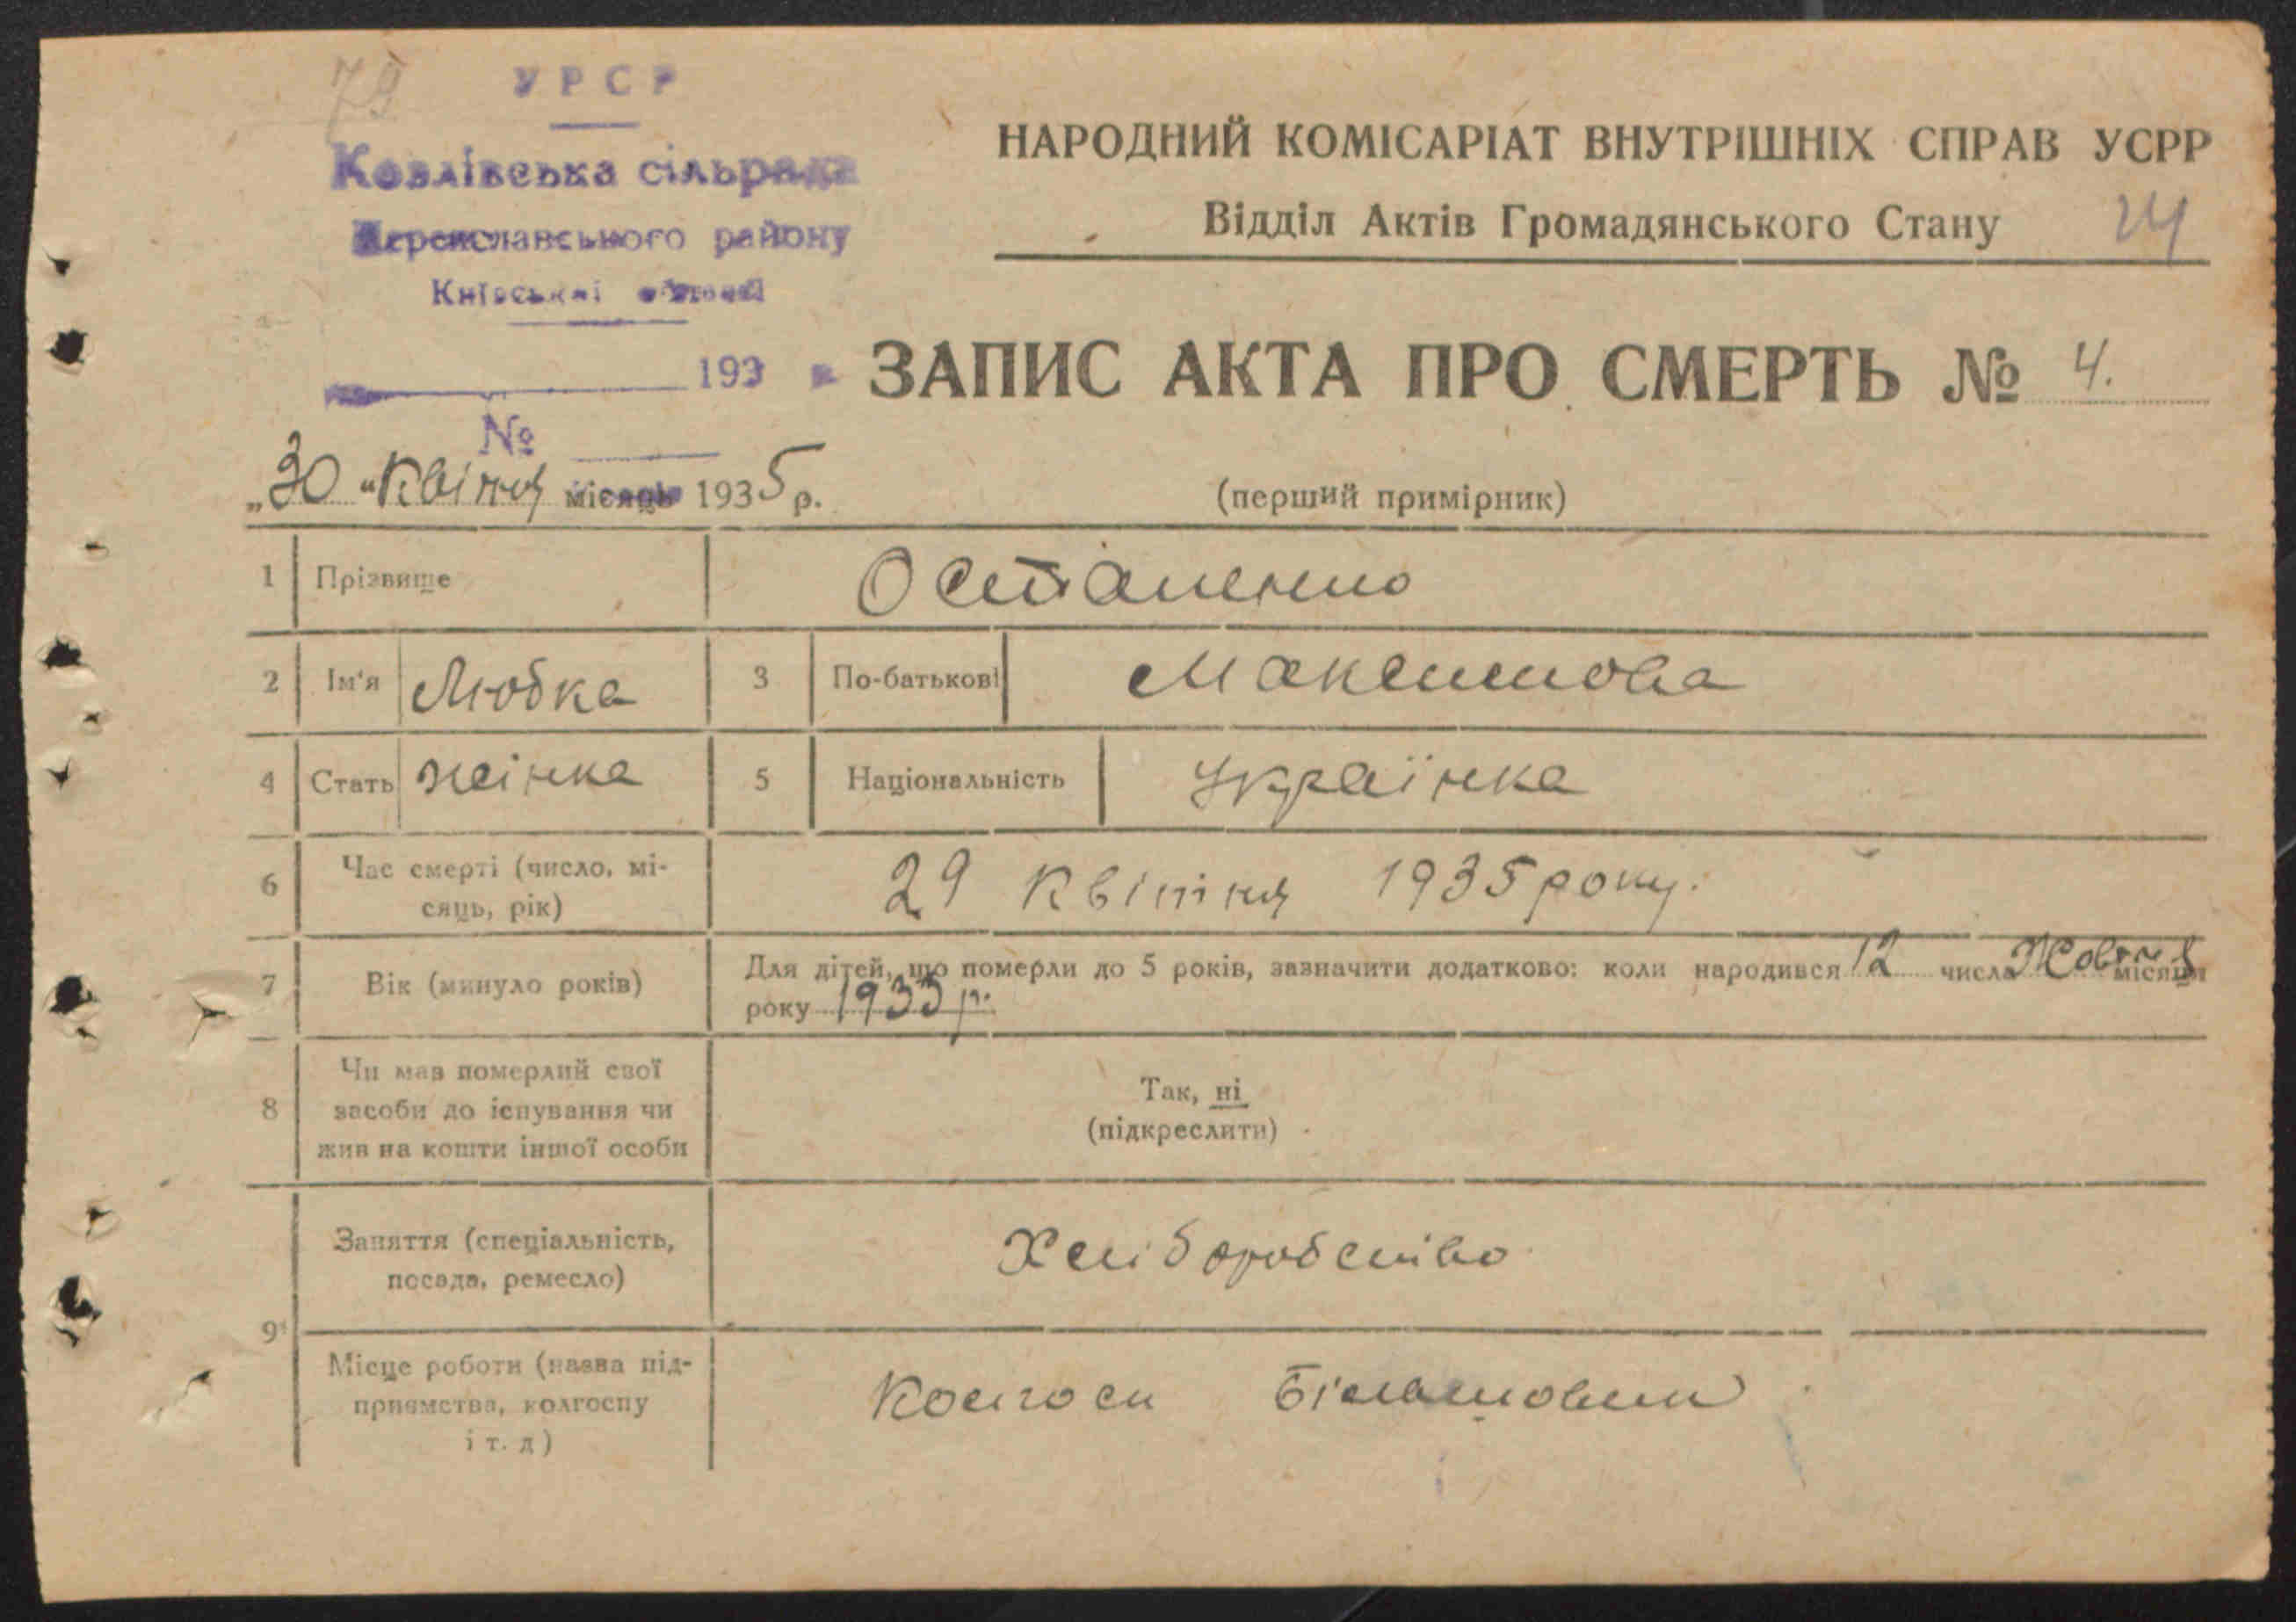 79
УРСР
Козлівська сільрада
Переяславського району
Київської області
193
№
НАРОДНИЙ КОМІСАРІАТ ВНУТРІШНІХ СПРАВ УСРР
Відділ Актів Громадянського Стану
ЗАПИС АКТА ПРО СМЕРТЬ № 4.
„30" Квітня місяць 1935 р.
(перший примірник)
1 Прізвище Остапенко
2 Ім'я Любка 3 По-батькові Максимова
4 Стать жінка 5 Національність Українка
6 Час смерті (число, мі-
сяць, рік) 29 Квітня 1935 року.
7 Вік (минуло років) Для дітей, що померли до 5 років, зазначити додатково: коли народився 12 числа Жовтня місяця
року 1933 р.
8 Чи мав померлий свої
засоби до існування чи
жив на кошти іншої особи
Так, ні
(підкреслити)
9 Заняття (спеціальність,
посада, ремесло) Хліборобство
Місце роботи (назва під-
приємства, колгоспу
і т. д) Колгосп